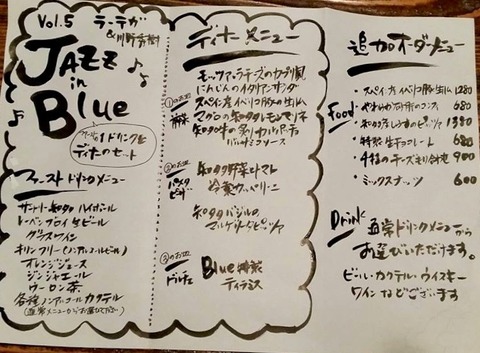 Vol.5 ラ・テガ
&川野秀樹
JAZZ
in
Blue
1ドリンクと
ディナーのセット
ファーストドリンクメニュー
サントリー知多ハイボール
レーベンブロイ生ビール
グラスワイン
キリンフリー(ノンアルコールビール)
オレンジジュース
ジンジャエール
ウーロン茶
各種ノンアルコールカクテル
(通常メニューからお選びください)
ディナーメニュー
①のお皿
前菜
モッツァラチーズのカプリ風
にんじんのイタリアンサラダ
スペイン産イベリコ豚の生ハム
マグロの知多レモンマリネ
知多牛の炙りカルパッチョ
バルサミコソース
②のお皿
パスタ
ピザ
知多野菜とトマト
冷菜カッペリーニ
知多バジルの
マルゲリータピッツァ
③のお皿
ドルチェ
Blue特製
ティラミス
追加オーダーメニュー
Food
・スペイン産イベリコ豚生ハム 1280
・やわらか砂肝のコンフィ 680
・知多産しらすのピッツァ 1380
・特製生チョコレート 680
・4種のチーズ盛り合わせ 900
・ミックスナッツ 600
Drink
通常ドリンクメニューから
お選びいただけます。
ビール・カクテル・ウイスキー
ワインなどございます